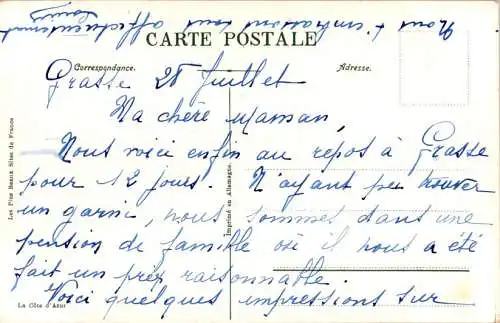 Nous t'embrassons tous affectueusement
Louis
CARTE POSTALE
Correspondance.
Adresse.
Grasse 28 Juillet
Ma chère Maman,
Nous voici enfin au repos à Grasse
pour 12 jours. N'ayant pu trouver
un garni, nous sommes dans une
pension de famille où il nous a été
fait un prix raisonnable.
Voici quelques impressions sur
Les Plus Beaux Sites de France
Imprimé en Allemagne
La Côte d'Azur